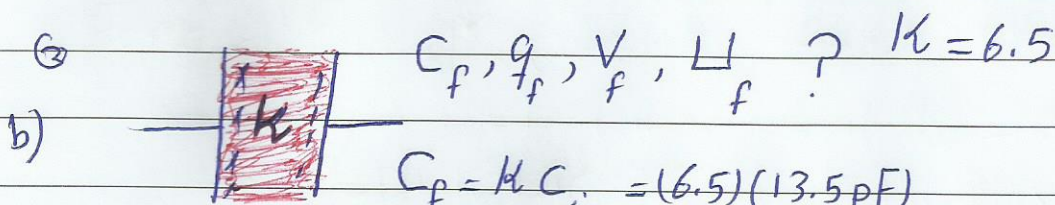 ② C_f, q_f, V_f, U_f ? K = 6.5
b) K
C_f = K C_i = (6.5)(13.5 pF)